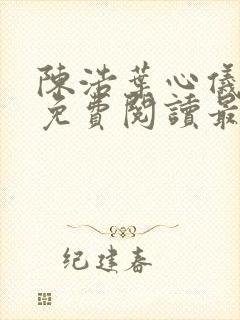 陳浩葉心儀
免費閱讀最
纪建春